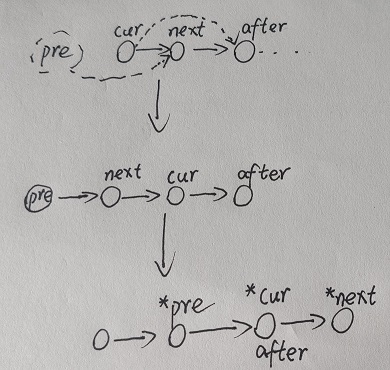 (pre) cur next after
pre next cur after
*pre *cur *next
after